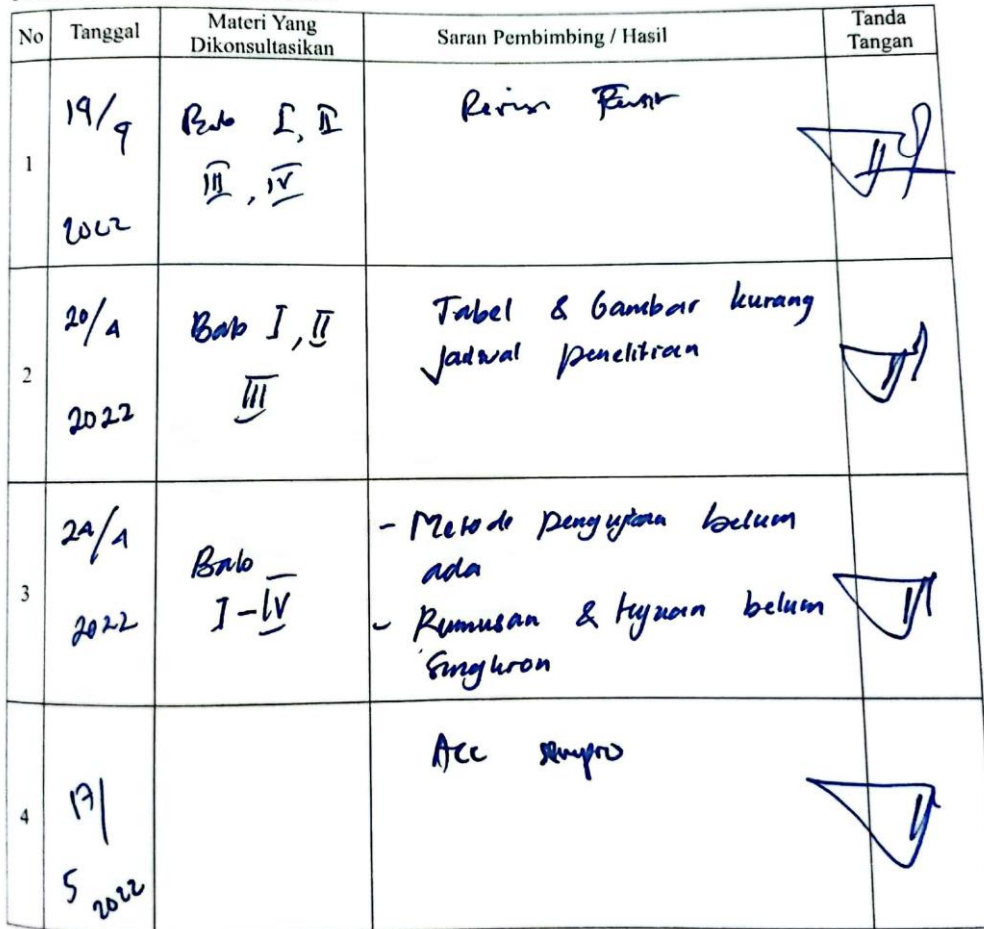 No Tanggal Materi Yang Dikonsultasikan Saran Pembimbing / Hasil Tanda Tangan
1
19/9
2022
Bab I, II
III, IV
Revisi
2
20/4
2022
Bab I, II
III
Tabel & Gambar kurang
Jadwal penelitian
3
24/4
2022
Bab
I-IV
- Metode pengujian belum
ada
- Rumusan & tujuan belum
singkron
4
17/
5 2022
Acc sempro